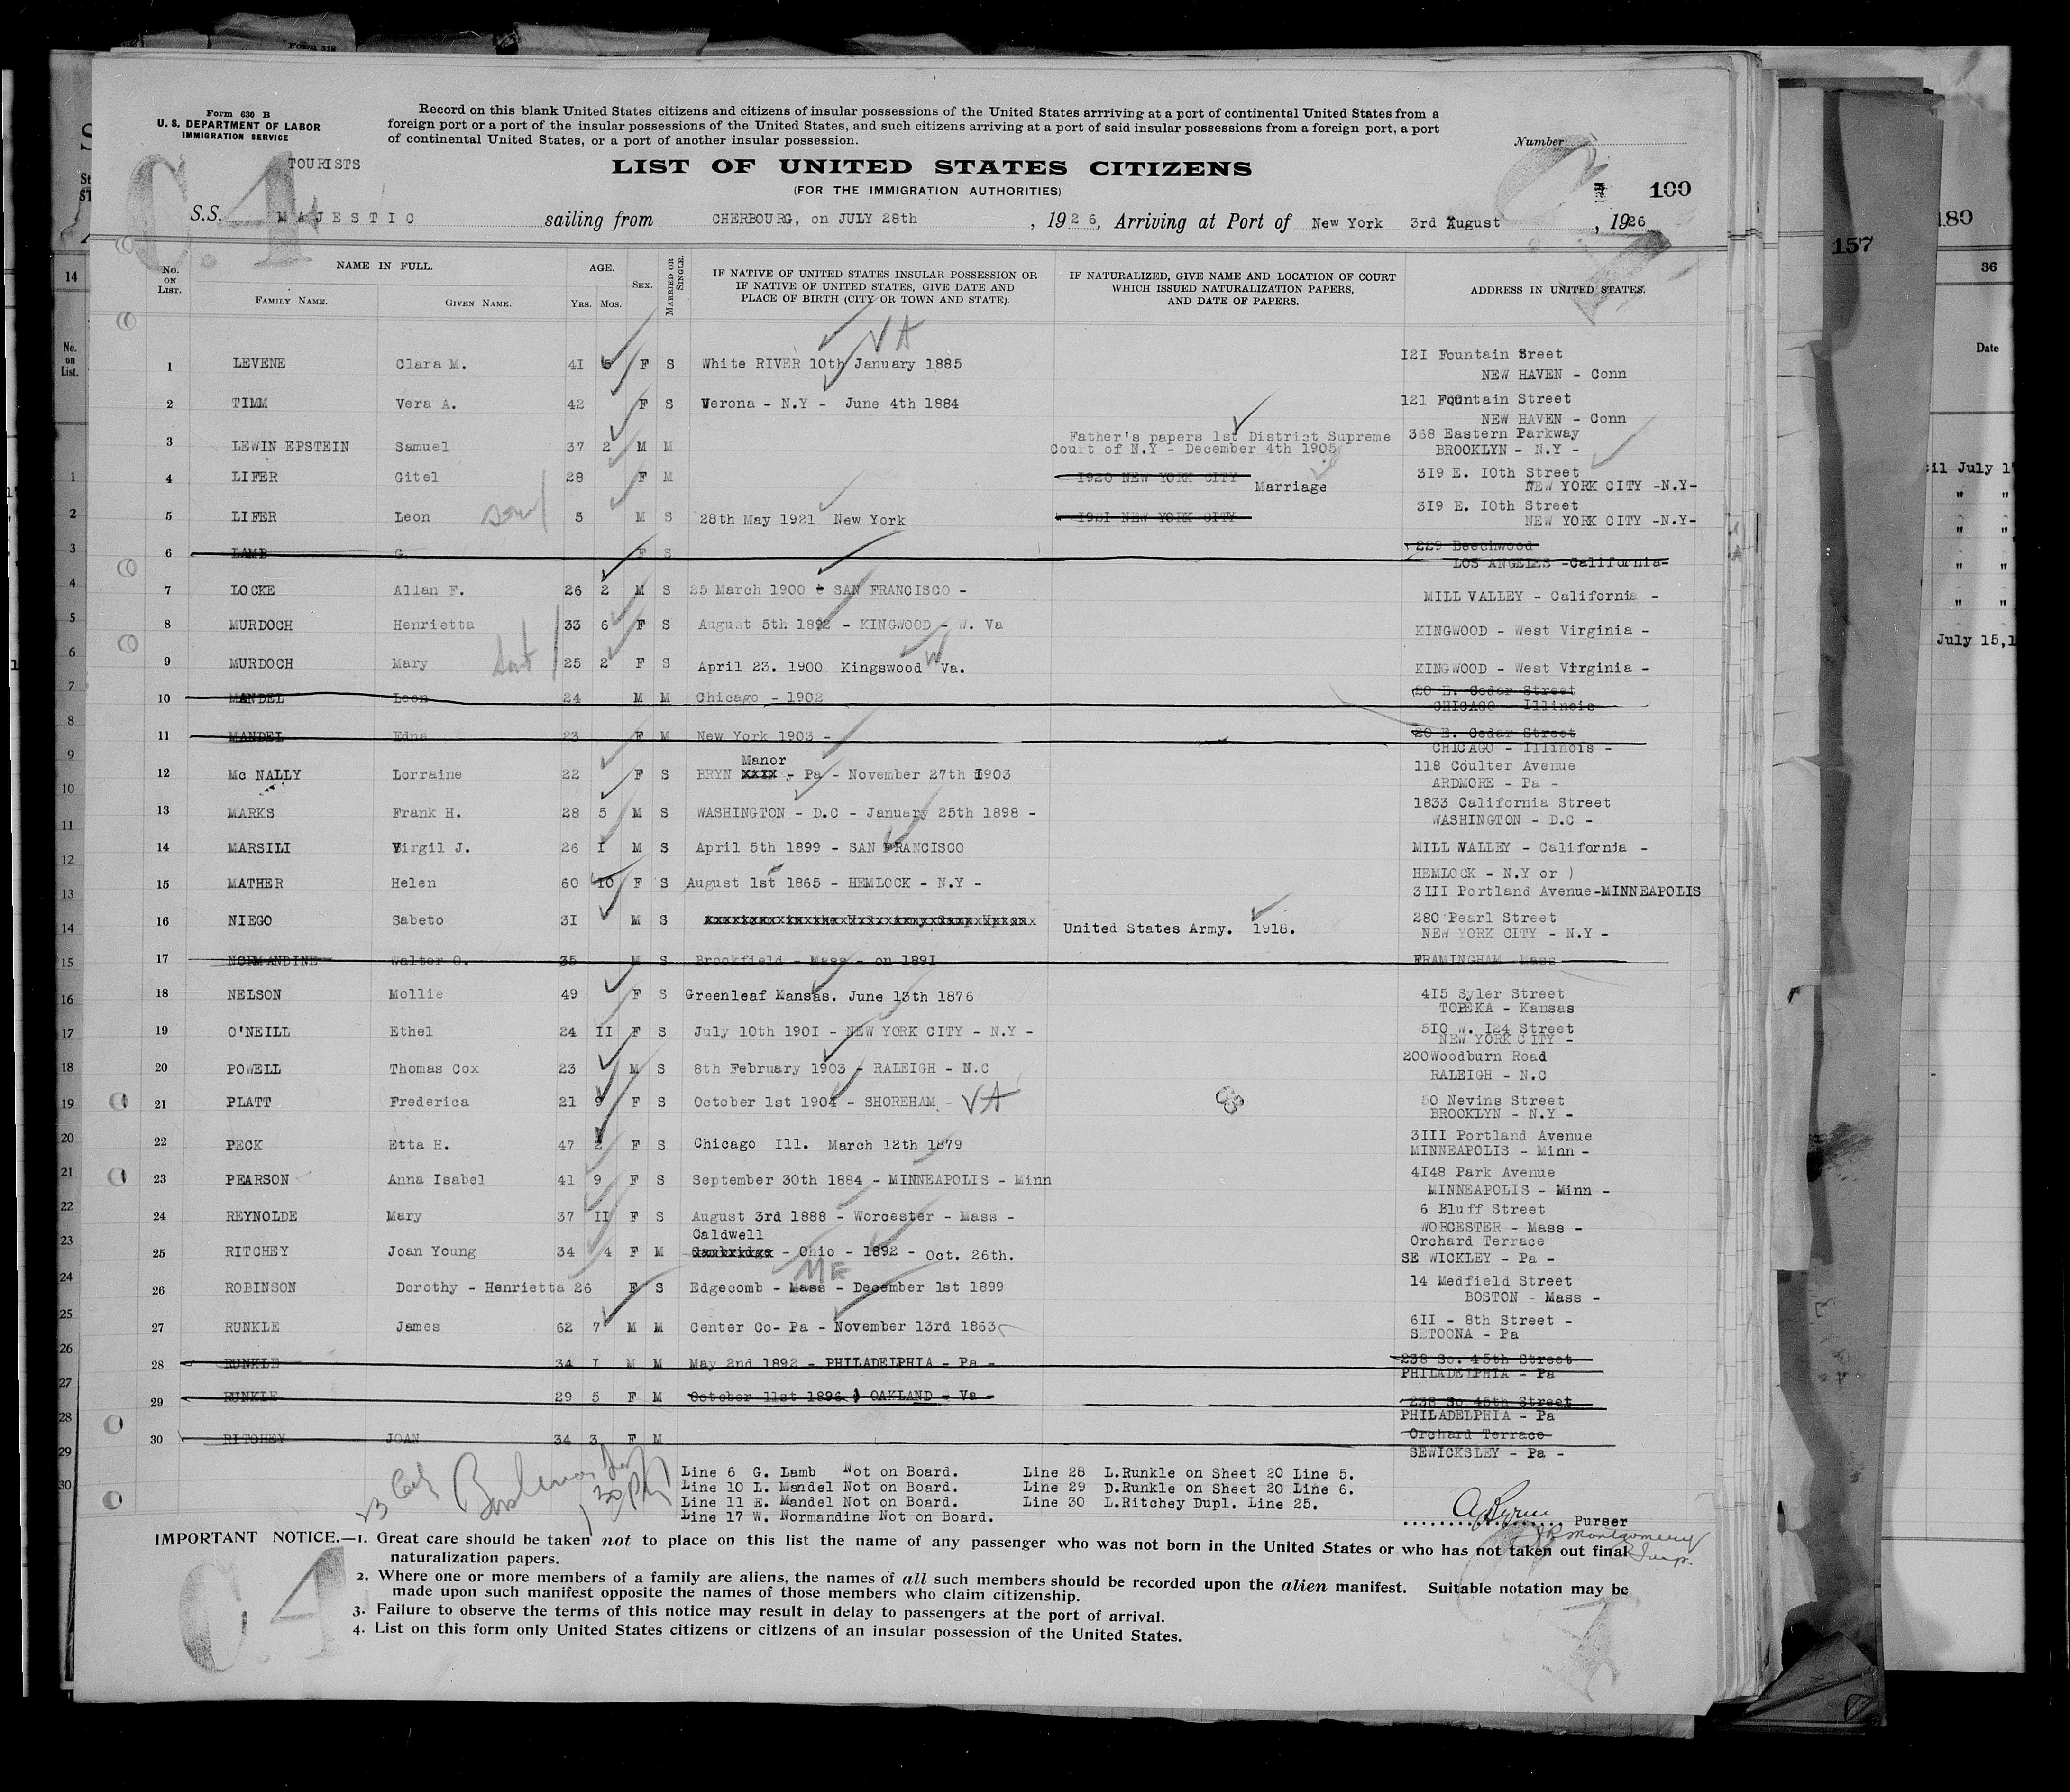 Form 630 B
U. S. DEPARTMENT OF LABOR
IMMIGRATION SERVICE
Record on this blank United States citizens and citizens of insular possessions of the United States arrriving at a port of continental United States from a
foreign port or a port of the insular possessions of the United States, and such citizens arriving at a port of said insular possessions from a foreign port, a port
of continental United States, or a port of another insular possession.
Number
TOURISTS
C.4
LIST OF UNITED STATES CITIZENS
(FOR THE IMMIGRATION AUTHORITIES)
100
S.S. MAJESTIC sailing from CHERBOURG, on JULY 28th, 1926, Arriving at Port of New York 3rd August, 1926
No. ON LIST. NAME IN FULL. FAMILY NAME. GIVEN NAME. AGE. Yrs. Mos. SEX. MARRIED OR SINGLE. IF NATIVE OF UNITED STATES INSULAR POSSESSION OR IF NATIVE OF UNITED STATES, GIVE DATE AND PLACE OF BIRTH (CITY OR TOWN AND STATE). IF NATURALIZED, GIVE NAME AND LOCATION OF COURT WHICH ISSUED NATURALIZATION PAPERS, AND DATE OF PAPERS. ADDRESS IN UNITED STATES.
1 LEVENE Clara M. 4I 5 F S White RIVER 10th January 1885 VA I2I Fountain Sreet
NEW HAVEN - Conn
2 TIMM Vera A. 42 F S Verona - N.Y - June 4th 1884 121 Fountain Street
NEW HAVEN - Conn
3 LEWIN EPSTEIN Samuel 37 2 M M Father's papers 1st District Supreme Court of N.Y - December 4th 1905 368 Eastern Parkway
BROOKLYN - N.Y -
4 LIFER Gitel 28 F M 1920 NEW YORK CITY Marriage 319 E. 10th Street
NEW YORK CITY -N.Y-
5 LIFER Leon son 5 M S 28th May 1921 New York 1921 NEW YORK CITY 319 E. 10th Street
NEW YORK CITY -N.Y-
6 LAMB G. F S 229 Beechwood
LOS ANGELES -California-
7 LOCKE Allan F. 26 2 M S 25 March 1900 SAN FRANCISCO - MILL VALLEY - California -
8 MURDOCH Henrietta 33 6 F S August 5th 1892 - KINGWOOD - W. Va KINGWOOD - West Virginia -
9 MURDOCH Mary 25 2 F S April 23. 1900 Kingswood W Va. KINGWOOD - West Virginia -
10 MANDEL Leon 24 M M Chicago - 1902 20 E. Cedar Street
CHICAGO - Illinois
11 MANDEL Edna 23 F M New York 1903 - 20 E. Cedar Street
CHICAGO - Illinois -
12 Mc NALLY Lorraine 22 F S BRYN XXXX Manor - Pa - November 27th 1903 118 Coulter Avenue
ARDMORE - Pa -
13 MARKS Frank H. 28 5 M S WASHINGTON - D.C - January 25th 1898 - 1833 California Street
WASHINGTON - D.C -
14 MARSILI Virgil J. 26 I M S April 5th 1899 - SAN FRANCISCO MILL VALLEY - California -
15 MATHER Helen 60 10 F S August 1st 1865 - HEMLOCK - N.Y - HEMLOCK - N.Y or )
3III Portland Avenue-MINNEAPOLIS
16 NIEGO Sabeto 3I M S United States Army. 1918. 280 Pearl Street
NEW YORK CITY - N.Y -
17 NORMANDINE Walter O. 35 M S Brookfield - Mass - on 189I FRAMINGHAM Mass
18 NELSON Mollie 49 F S Greenleaf Kansas. June 13th 1876 4I5 Syler Street
TOPEKA - Kansas
19 O'NEILL Ethel 24 II F S July 10th 190I - NEW YORK CITY - N.Y - 5I0 W. I24 Street
NEW YORK CITY -
20 POWELL Thomas Cox 23 M S 8th February 1903 - RALEIGH - N.C 200Woodburn Road
RALEIGH - N.C
21 PLATT Frederica 21 9 F S October 1st 1904 - SHOREHAM - VA 50 Nevins Street
BROOKLYN - N.Y -
22 PECK Etta H. 47 2 F S Chicago Ill. March 12th 1879 3III Portland Avenue
MINNEAPOLIS - Minn -
23 PEARSON Anna Isabel 41 9 F S September 30th 1884 - MINNEAPOLIS - Minn 4I48 Park Avenue
MINNEAPOLIS - Minn -
24 REYNOLDE Mary 37 II F S August 3rd 1888 - Worcester - Mass - 6 Bluff Street
WORCESTER - Mass -
25 RITCHEY Joan Young 34 4 F M Caldwell Cambridge - Ohio - 1892 - Oct. 26th. Orchard Terrace
SE WICKLEY - Pa -
26 ROBINSON Dorothy - Henrietta 26 F S Edgecomb - Mass ME - December 1st 1899 14 Medfield Street
BOSTON - Mass -
27 RUNKLE James 62 7 M M Center Co- Pa - November 13rd 1863 6II - 8th Street -
SETOONA - Pa
28 RUNKLE 34 I M M May 2nd 1892 - PHILADELPHIA - Pa - 238 So. 45th Street
PHILADELPHIA - Pa
29 RUNKLE 29 5 F M October 11st 1896 OAKLAND - Va - 238 So 45th Street
PHILADELPHIA - Pa
30 RITCHEY JOAN 34 3 F M Orchard Terrace
SEWICKSLEY - Pa -
Line 6 G. Lamb Not on Board. Line 28 L.Runkle on Sheet 20 Line 5.
Line 10 L. Mandel Not on Board. Line 29 D.Runkle on Sheet 20 Line 6.
Line 11 E. Mandel Not on Board. Line 30 L.Ritchey Dupl. Line 25.
Line 17 W. Normandine Not on Board.
Purser
IMPORTANT NOTICE.—1. Great care should be taken not to place on this list the name of any passenger who was not born in the United States or who has not taken out final
naturalization papers.
2. Where one or more members of a family are aliens, the names of all such members should be recorded upon the alien manifest. Suitable notation may be
made upon such manifest opposite the names of those members who claim citizenship.
3. Failure to observe the terms of this notice may result in delay to passengers at the port of arrival.
4. List on this form only United States citizens or citizens of an insular possession of the United States.
C.4
157
180
36
Date
July 15,1
14
No. on List.